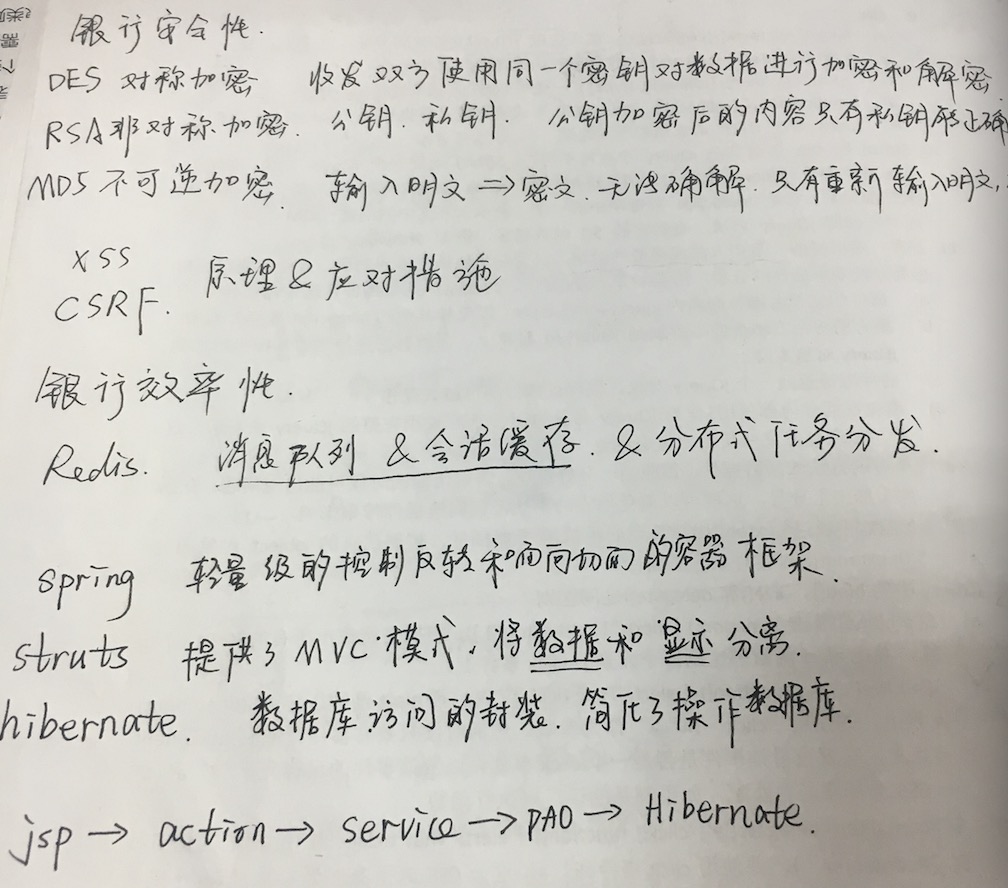 银行安全性.
DES 对称加密 收发双方使用同一个密钥对数据进行加密和解密
RSA非对称加密. 公钥. 私钥. 公钥加密后的内容只有私钥能正确
MD5 不可逆加密. 输入明文 => 密文. 无法破解. 只有重新输入明文,
XSS
CSRF. 原理 & 应对措施
银行效率性.
Redis. 消息队列 & 会话缓存. & 分布式任务分发.
spring 轻量级的控制反转和面向切面的容器框架.
struts 提供了MVC模式, 将数据和显示分离.
hibernate. 数据库访问的封装. 简化了操作数据库.
jsp → action → service → DAO → Hibernate.